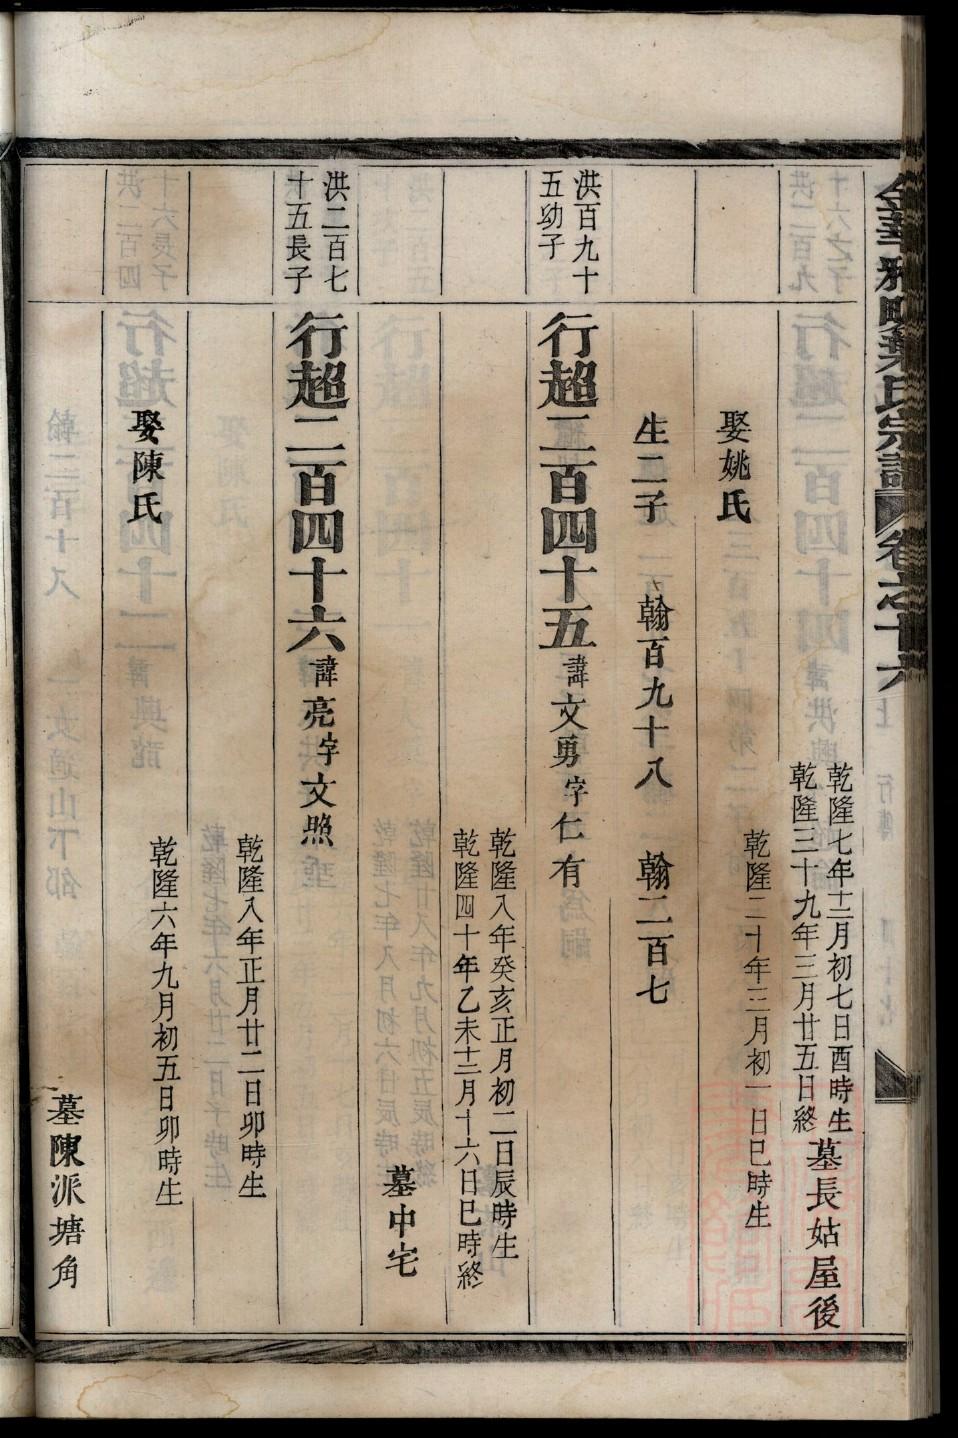 宗譜 卷之廿六
乾隆七年十二月初七日酉時生
乾隆三十九年三月廿五日終
墓長姑屋後
娶姚氏
乾隆二十年三月初一日巳時生
生二子 翰百九十八 翰二百七
洪百九十
五幼子
行超二百四十五 諱文勇字仁有
乾隆八年癸亥正月初二日辰時生
乾隆四十年乙未十二月十六日巳時終
墓中宅
洪二百七
十五長子
行超二百四十六 諱亮字文照
乾隆八年正月廿二日卯時生
娶陳氏
乾隆六年九月初五日卯時生
墓陳派塘角